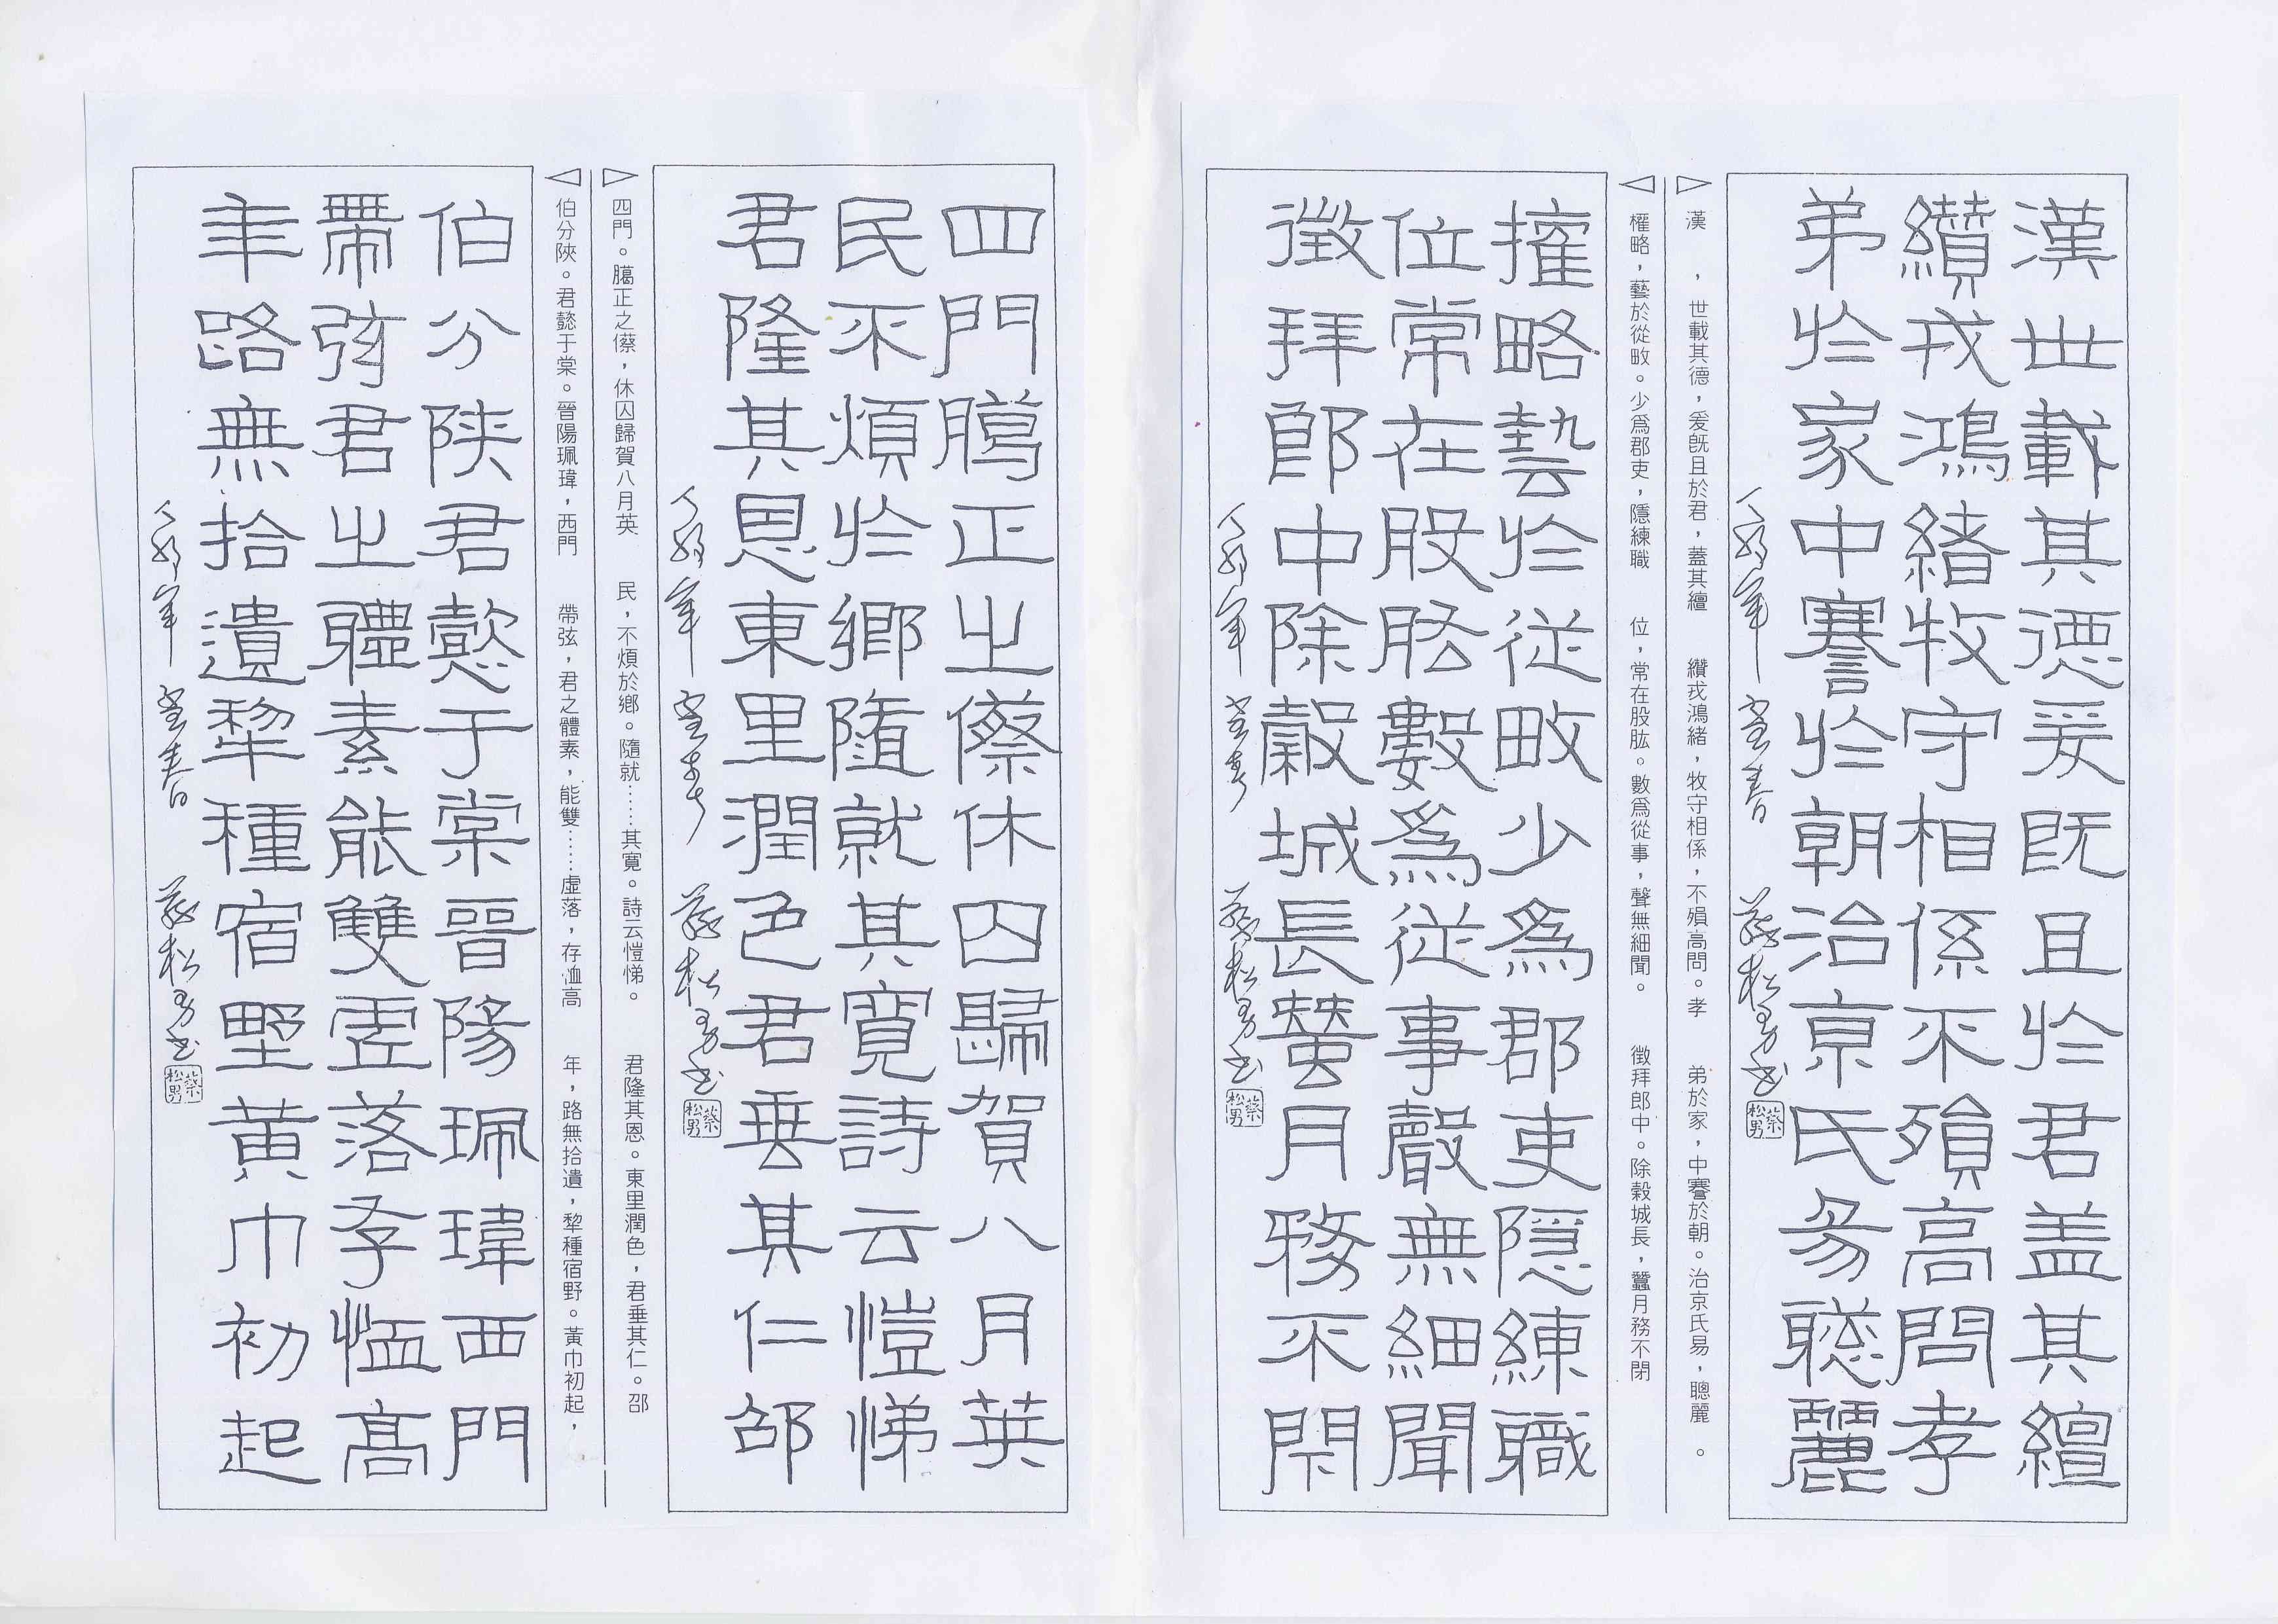 漢世載其德爰既且於君盖其繵
纘戎鴻緒牧守相係不殞高問孝
弟於家中謇於朝治京氏易聰麗
蔡松男書
蔡松男
漢　，世載其德，爰既且於君，蓋其繵　纘戎鴻緒，牧守相係，不殞高問。孝　弟於家，中謇於朝。治京氏易，聰麗。
權略，藝於從畋。少為郡吏，隱練職　位，常在股肱。數為從事，聲無細聞。　徵拜郎中。除穀城長，蠶月務不閉
擢略藝於從畋少為郡吏隱練職
位常在股肱數為從事聲無細聞
徵拜郎中除穀城長蠶月務不閇
蔡松男書
蔡松男
四門臈正之傺休囚歸賀八月英
民不煩於鄉隨就其寬詩云愷悌
君隆其恩東里潤色君垂其仁邵
蔡松男書
蔡松男
四門。臈正之傺，休囚歸賀八月英　民，不煩於鄉。隨就……其寬。詩云愷悌。　君隆其恩。東里潤色，君垂其仁。邵
伯分陝。君懿于棠。晉陽珮瑋，西門　帶弦，君之體素，能雙……虛落，存恤高　年，路無拾遺，犂種宿野。黃巾初起，
伯分陝君懿于棠晉陽珮瑋西門
帶弦君之體素能雙虛落存恤高
年路無拾遺犂種宿野黄巾初起
蔡松男書
蔡松男